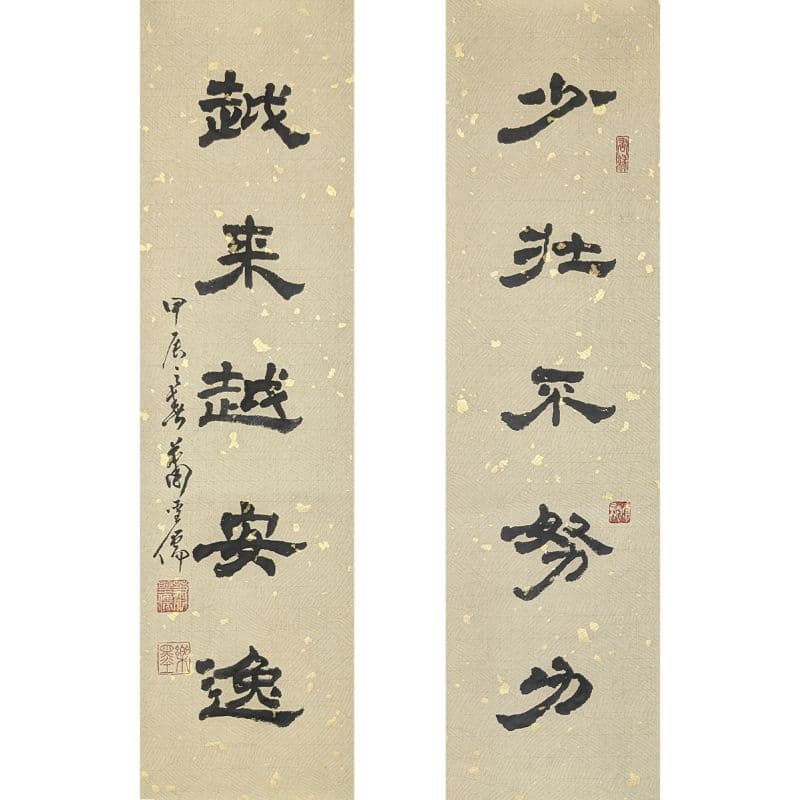 少壮不努力
越来越安逸
甲辰之春